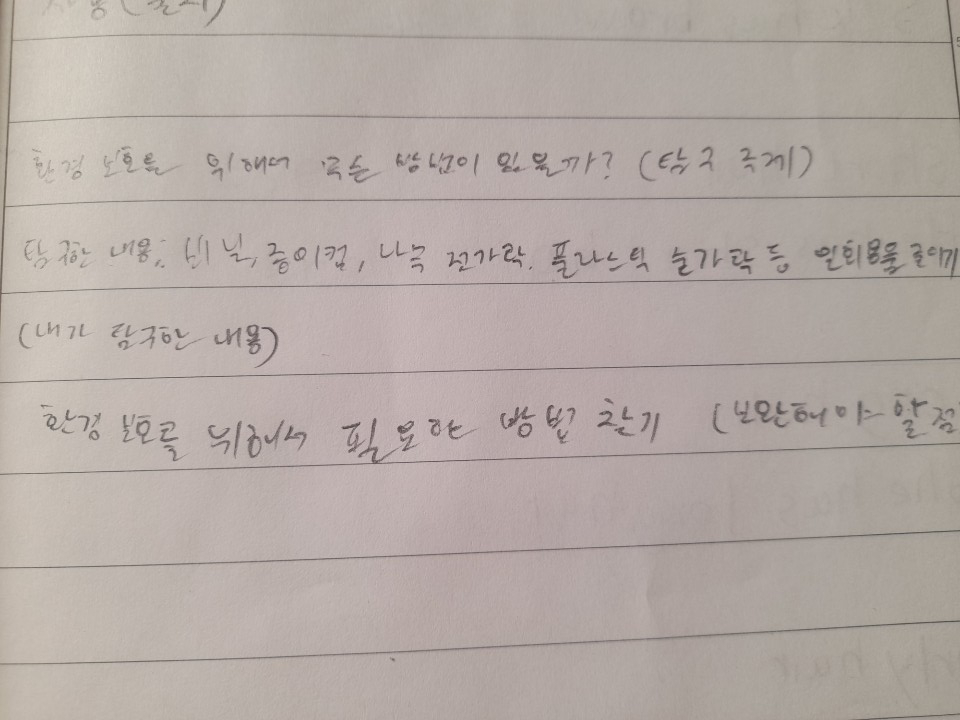 환경 보호를 위해서 무슨 방법이 있을까? (탐구 주제)
탐구한 내용: 비닐, 종이컵, 나무 젓가락, 플라스틱 숟가락 등 일회용품 줄이기
(내가 탐구한 내용)
환경 보호를 위해서 필요한 방법 찾기 (보완해야 할 점